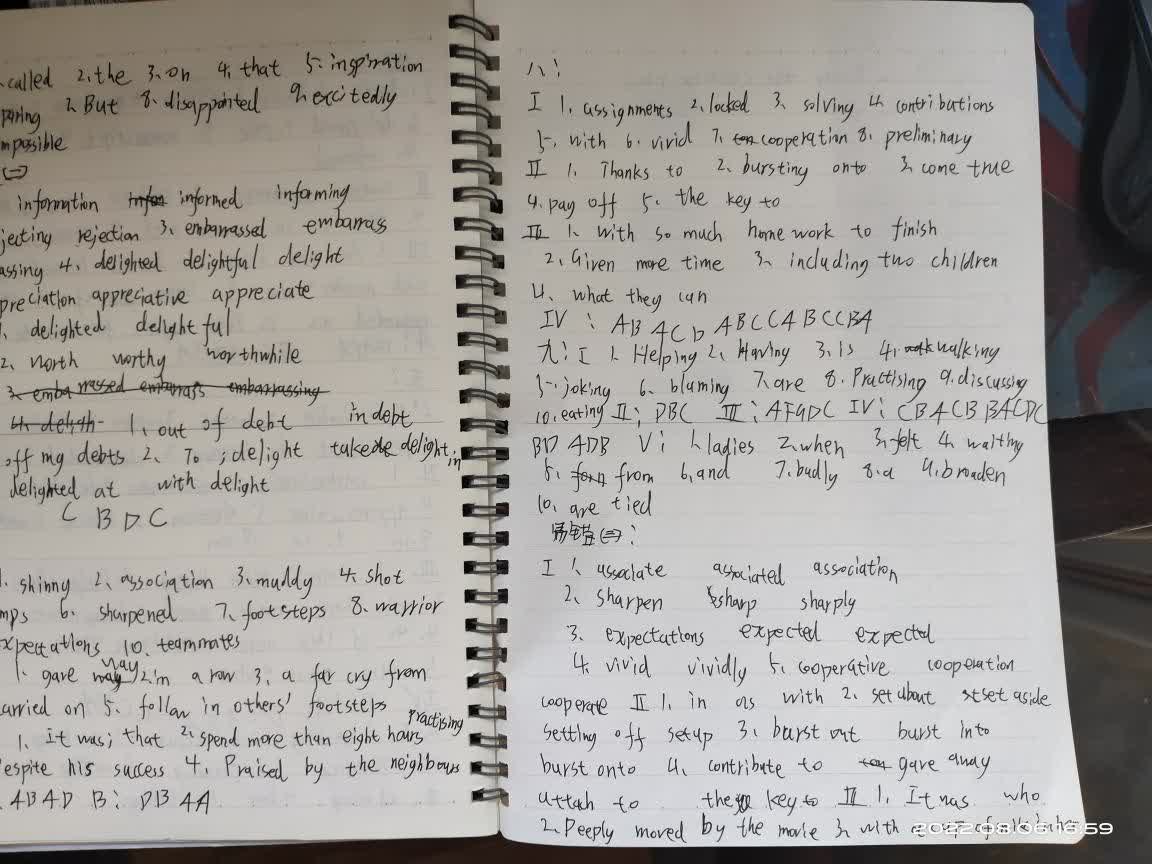 called 2、the 3、on 4、that 5、inspiration
2、But 8、disappointed 9、excitedly
mpossible
(二)
information informed informing
jecting rejection 3、embarrassed embarrass
assing 4、delighted delightful delight
preciation appreciative appreciate
1、delighted delightful
2、worth worthy worthwhile
3、embarrassed embarrass embarrassing
1、out of debt in debt
off my debts 2、To ; delight take delight in
delighted at with delight
C B D C
1、skinny 2、association 3、muddy 4、shot
mps 6、sharpened 7、footsteps 8、warrior
xpectations 10、teammates
1、gave way 2、in a row 3、a far cry from
arried on 5、follow in others' footsteps
1、It was; that 2、spend more than eight hours practising
espite his success 4、Praised by the neighbours
ABAD B: DB AA
八:
I 1、assignments 2、locked 3、solving 4、contributions
5、with 6、vivid 7、cooperation 8、preliminary
II 1、Thanks to 2、bursting onto 3、come true
4、pay off 5、the key to
III 1、with so much homework to finish
2、Given more time 3、including two children
4、what they can
IV : AB ACD ABCCABCCBA
九: I 1、Helping 2、Having 3、is 4、walking
5、joking 6、blaming 7、are 8、Practising 9、discussing
10、eating II: DBC III: AFGDC IV: CBACB BACDC
BD ADB V: 1、ladies 2、when 3、felt 4、waiting
5、from 6、and 7、badly 8、a 9、broaden
10、are tied
易错(二):
I 1、associate associated association
2、sharpen sharp sharply
3、expectations expected expected
4、vivid vividly 5、cooperative cooperation
cooperate II 1、in as with 2、set about set aside
setting off set up 3、burst out burst into
burst onto 4、contribute to gave away
attach to the key to III 1、It was who
2、Deeply moved by the movie 3、with a
2022/08/06 16:59